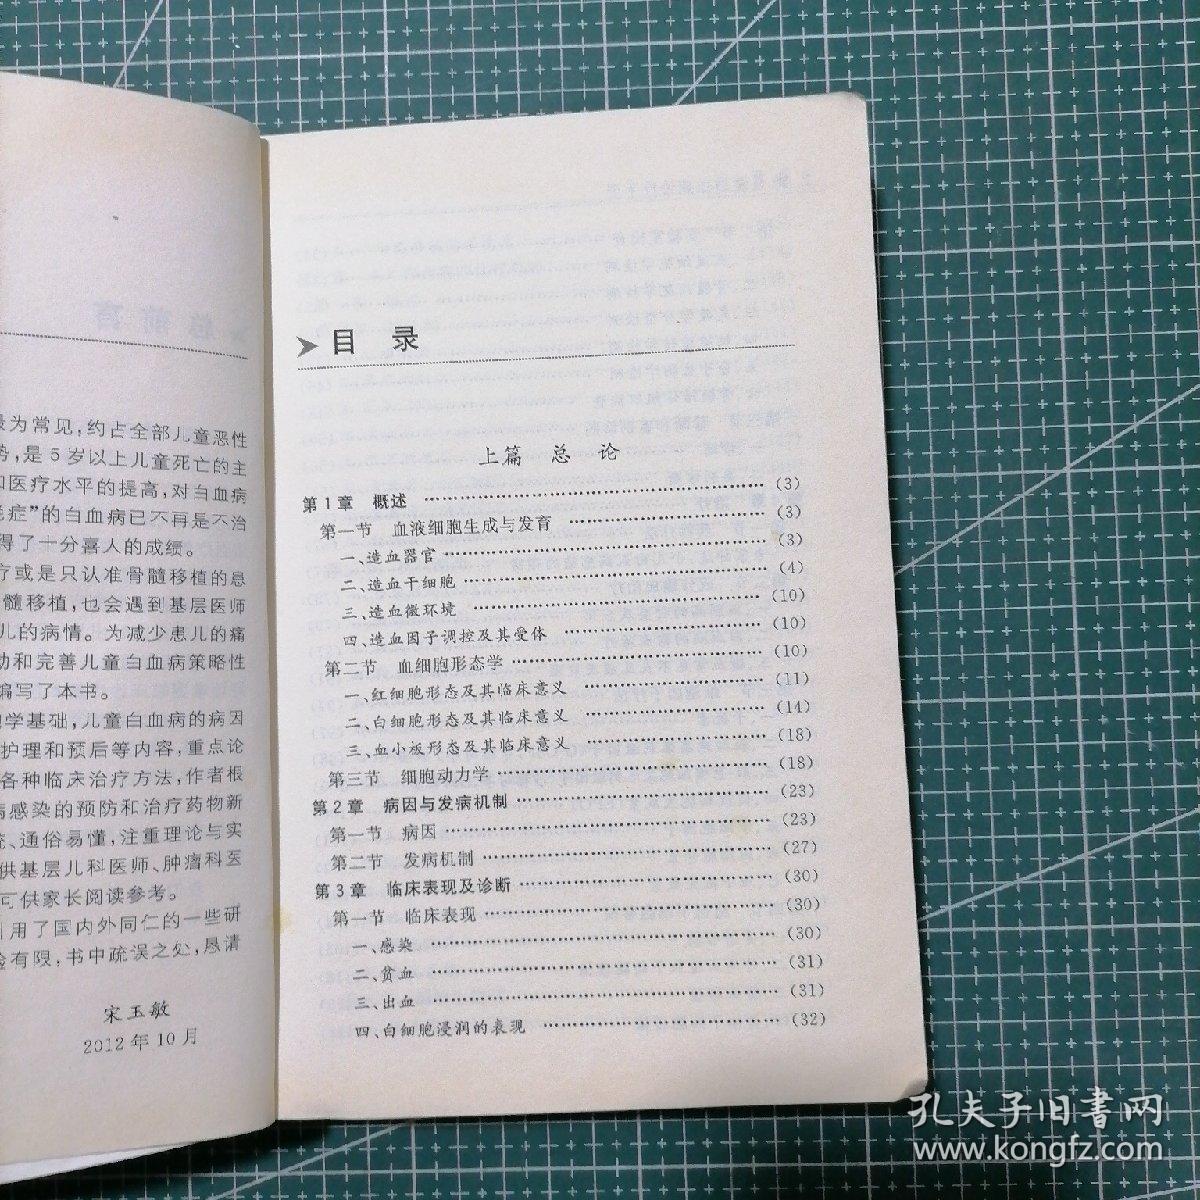 最为常见,约占全部儿童恶性
势,是5岁以上儿童死亡的主
和医疗水平的提高,对白血病
绝症”的白血病已不再是不治
得了十分喜人的成绩。
疗或是只认准骨髓移植的患
髓移植,也会遇到基层医师
儿的病情。为减少患儿的痛
助和完善儿童白血病策略性
编写了本书。
胞学基础,儿童白血病的病因
护理和预后等内容,重点论
各种临床治疗方法,作者根
病感染的预防和治疗药物新
统、通俗易懂,注重理论与实
供基层儿科医师、肿瘤科医
可供家长阅读参考。
引用了国内外同仁的一些研
验有限,书中疏误之处,恳请
宋玉敏
2012年10月
目 录
上篇 总 论
第1章 概述 (3)
第一节 血液细胞生成与发育 (3)
一、造血器官 (3)
二、造血干细胞 (4)
三、造血微环境 (10)
四、造血因子调控及其受体 (10)
第二节 血细胞形态学 (10)
一、红细胞形态及其临床意义 (11)
二、白细胞形态及其临床意义 (14)
三、血小板形态及其临床意义 (18)
第三节 细胞动力学 (18)
第2章 病因与发病机制 (23)
第一节 病因 (23)
第二节 发病机制 (27)
第3章 临床表现及诊断 (30)
第一节 临床表现 (30)
一、感染 (30)
二、贫血 (31)
三、出血 (31)
四、白细胞浸润的表现 (32)
孔夫子旧書网
www.kongfz.com